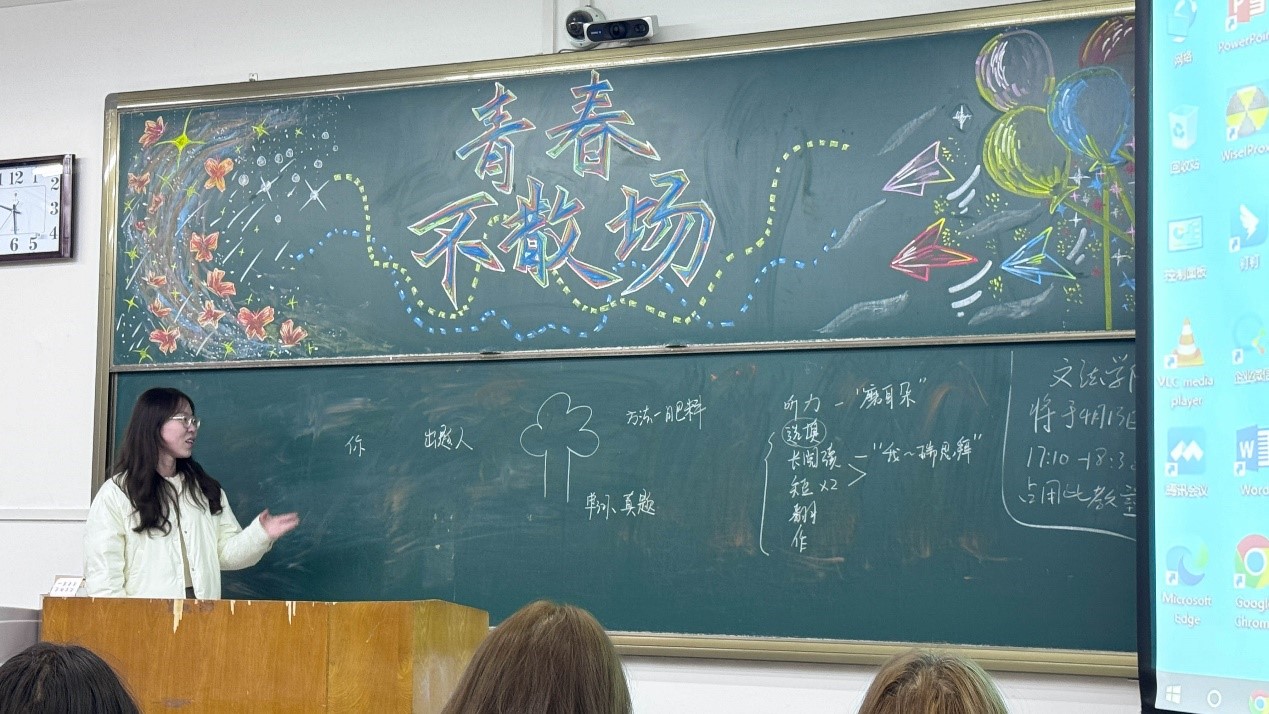 青春
不散场
你
出题人
方法-肥料
单词、真题
听力 - "磨耳朵"
选填
长阅读
短 x2
翻
作
文法学院
将于4月13日
17:10-18:3
占用此教室
12
1
2
3
4
5
6
网络
PowerPoin
回收站
控制面板
钉钉
VLC media
player
企业微信
腾讯会议
Word
Microsoft
Edge
Google
Chrom